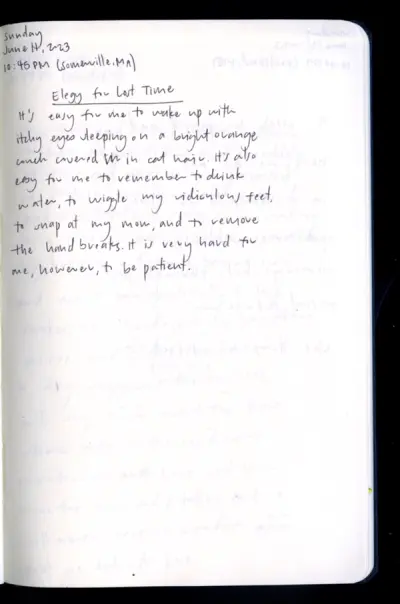 Sunday
June 11, 2023
10:48 PM (Somerville, MA)
Elegy for Lost Time
It's easy for me to wake up with
itchy eyes sleeping on a bright orange
couch covered in cat hair. It's also
easy for me to remember to drink
water, to wiggle my ridiculous feet,
to snap at my mom, and to remove
the hand breaks. It is very hard for
me, however, to be patient.